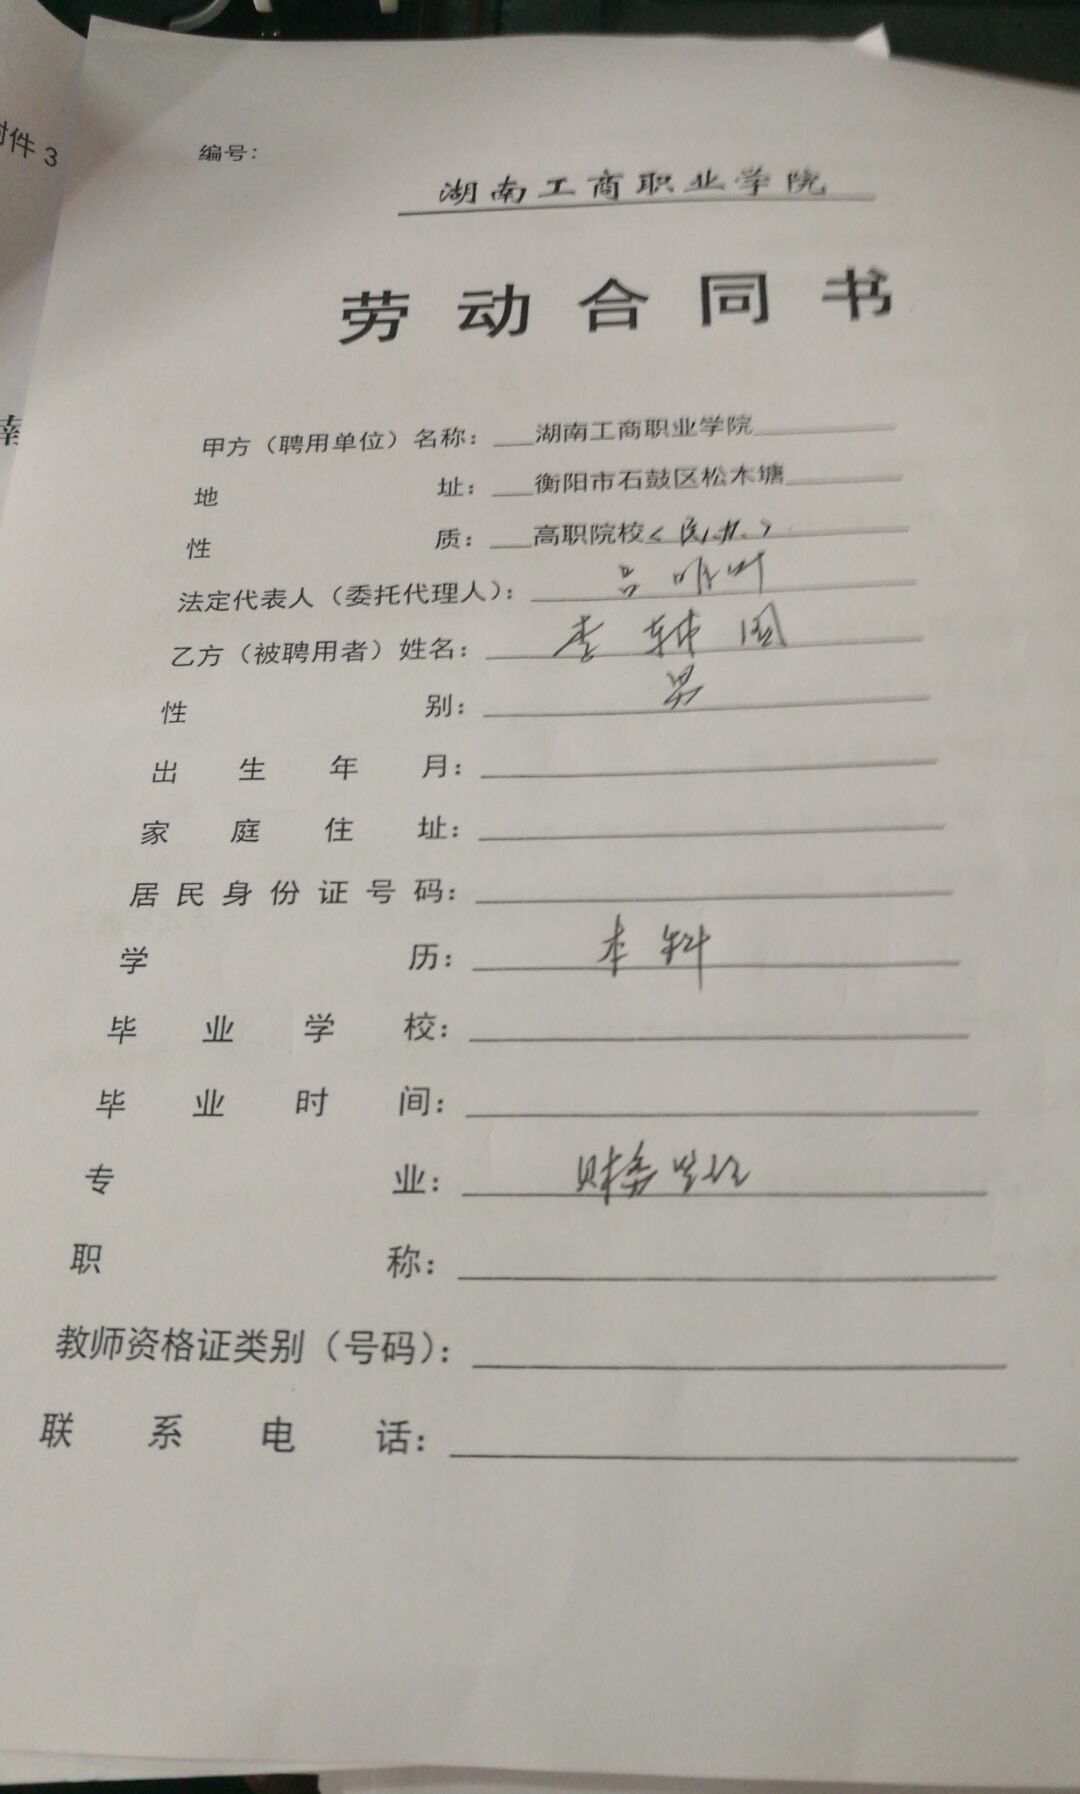 附件 3
编号：
湖南工商职业学院
劳动合同书
甲方（聘用单位）名称：湖南工商职业学院
地址：衡阳市石鼓区松木塘
性质：高职院校（民办）
法定代表人（委托代理人）：
乙方（被聘用者）姓名：李 国
性别：男
出生年月：
家庭住址：
居民身份证号码：
学历：本科
毕业学校：
毕业时间：
专业：财务
职称：
教师资格证类别（号码）：
联系电话：